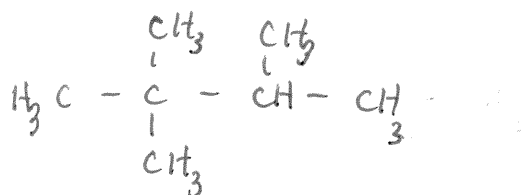 CH₃ CH₃
H₃C - C - CH - CH₃
CH₃